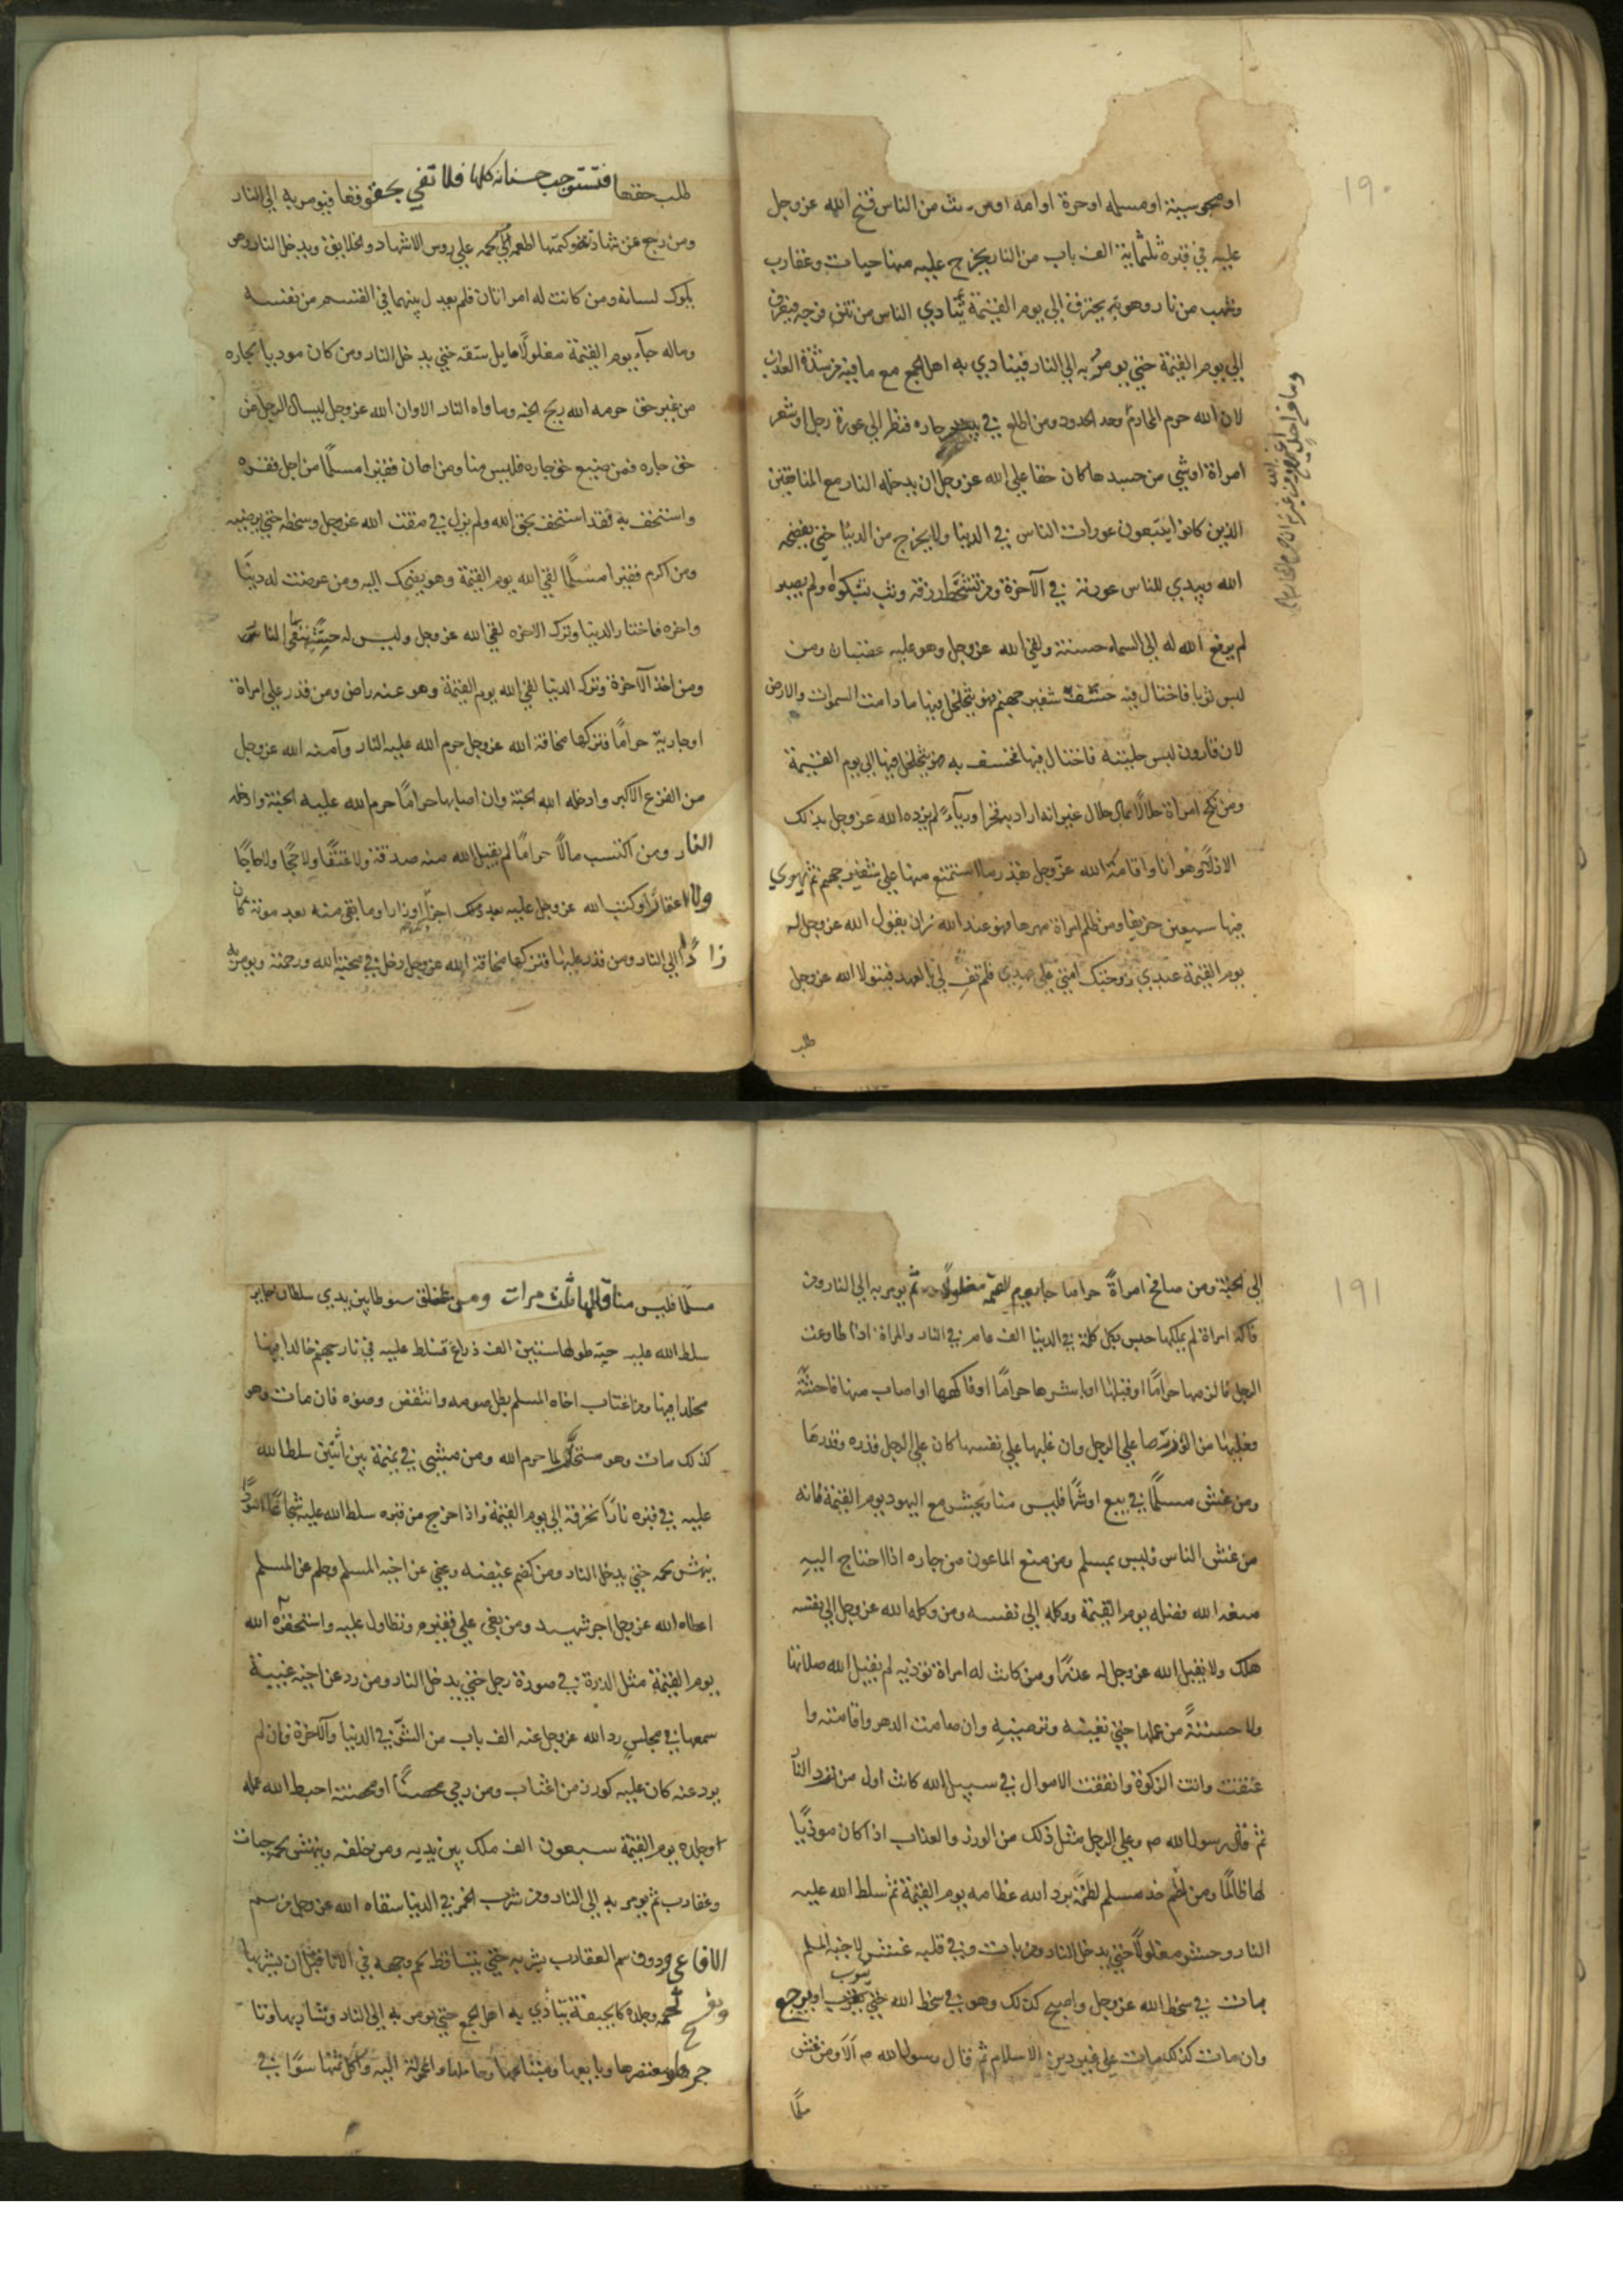 ١٩٠
او مجوسية او مسلمه او حرة او امه او من الناس فتح الله عز وجل
عليه في قبره ثلثماية الف باب من النار يخرج عليه منها حيات وعقارب
وشهب من نار وهو يحترق الي يوم القيمة يتادي الناس من نتن فرجه فيعرف
الي يوم القيمة حتي يومر به الي النار فيتادي به اهل الجمع مع ما فيه من شدة العذاب
لان الله حرم المحارم وحد الحدود ومن اطلع في بيت جاره فنظر الي عورة رجل او شعر
امراة او شي من جسدها كان حقا علي الله عز وجل ان يدخله النار مع المنافقين
الذين كانوا يتبعون عورات الناس في الدنيا ولا يخرج من الدنيا حتي يفضحه
الله ويبدي للناس عورته في الآخرة ومن تسخط رزقه وبث شكواه ولم يصبر
لم يرفع الله له الي السماء حسنة ولقي الله عز وجل وهو عليه غضبان ومن
لبس ثوبا فاختال فيه خسف شفير جهنم فهو يتجلجل فيها ما دامت السموات والارض
لان قارون لبس حليته فاختال فيها فخسف به فهو يتجلجل فيها الي يوم القيمة
ومن نكح امراة حلالا بمال حلال غير انه اراد به فخرا ورياء لم يزده الله عز وجل بذلك
الا ذلا وهوانا واقامه الله عز وجل بقدر ما استمتع منها علي شفير جهنم ثم يهوي
فيها سبعين خريفا ومن ظلم امراة مهرها فهو عند الله زان يقول الله عز وجل له
يوم القيمة عبدي زوجتك امتي علي عهدي فلم تف لي بالعهد فيتولا الله عز وجل
طلب
طلب حقها فتستوجب حسناته كلها فلا تفي بحقها فيومر به الي النار
ومن رجع عن شهادته وكتمها اطعمه الله لحمه علي روس الاشهاد والخلايق ويدخل النار وهو
يلوك لسانه ومن كانت له امراتان فلم يعدل بينهما في القسم من نفسه
وماله جآء يوم القيمة مغلولا مايل شقه حتي يدخل النار ومن كان موديا لجاره
من غير حق حرمه الله ريح الجنه وماواه النار الا وان الله عز وجل ليسال الرجل عن
حق جاره فمن ضيع حق جاره فليس منا ومن اهان فقيرا مسلما من اجل فقره
واستخف به فقد استخف بحق الله ولم يزل في مقت الله عز وجل وسخطه حتي يرضيه
ومن اكرم فقيرا مسلما لقي الله يوم القيمة وهو يضحك اليه ومن عرضت له دنيا
واخره فاختار الدنيا وترك الاخره لقي الله عز وجل وليس له حسنة يتقي بها النار
ومن اخذ الآخرة وترك الدنيا لقي الله يوم القيمة وهو عنه راض ومن قدر علي امراة
او جارية حراما فتركها مخافة الله عز وجل حرم الله عليه النار وآمنه الله عز وجل
من الفزع الاكبر وادخله الله الجنة وان اصابها حراما حرم الله عليه الجنة وادخله
النار ومن اكتسب مالا حراما لم يقبل الله منه صدقة ولا عتقا ولا حجا ولا
ولا اعتمارا وكتب الله عز وجل عليه بعدد ذلك اوزارا وما بقي منه بعد موته كان
زادا الي النار ومن قدر عليها فتركها مخافة الله عز وجل دخل في محبة الله ورحمته ويومر به
١٩١
الي الجنة ومن صافح امراة حراما جاء يوم القيمه مغلولا ثم يومر به الي النار ومن
فاكه امراة لم يملكها حبس بكل كلمة في الدنيا الف عام في النار والمراة اذا طاوعت
الرجل فالتزمها حراما او قبلها او باشرها حراما او فاكهها او اصاب منها فاحشة
فعليها من الوزر ما علي الرجل وان غلبها علي نفسها كان علي الرجل وزره ووزرها
ومن غش مسلما في بيع او شرا فليس منا ويحشر مع اليهود يوم القيمة لانه
من غش الناس فليس بمسلم ومن منع الماعون من جاره اذا احتاج اليه
منعه الله فضله يوم القيمة ووكله الي نفسه ومن وكله الله عز وجل الي نفسه
هلك ولا يقبل الله عز وجل له عذرا ومن كانت له امراة توذيه لم يقبل الله صلاتها
ولا حسنة من عملها حتي تعينه وترضيه وان صامت الدهر واقامته وا
عتقت واتت الزكوة وانفقت الاموال في سبيل الله كانت اول من يرد النار
ثم قال رسول الله م وعلي الرجل مثل ذلك من الوزر والعذاب اذا كان موذيا
لها ظالما ومن لطم خد مسلم لطمة بدد الله عظامه يوم القيمة ثم سلط الله عليه
النار وحشر مغلولا حتي يدخل النار ومن بات وفي قلبه غش لاخيه المسلم
بات في سخط الله عز وجل واصبح كذلك وهو في سخط الله حتي يتوب او يرجع
وان مات كذلك مات علي غير دين الاسلام ثم قال رسول الله م الا ومن غش
مسلما
مسلما فليس منا قالها ثلث مرات ومن علق سوطا بين يدي سلطان جاير
سلط الله عليه حية طولها ستين الف ذراع فتسلط عليه في نار جهنم خالدا فيها
مخلدا فيها ومن اغتاب اخاه المسلم بطل صومه وانتقض وضوه فان مات وهو
كذلك مات وهو مستحل لما حرم الله ومن مشي في نميمة بين اثنين سلط الله
عليه في قبره نارا تحرقه الي يوم القيمة واذا خرج من قبره سلط الله عليه شجاعا اسود
ينهش لحمه حتي يدخل النار ومن كظم غيضه وعفي عن اخيه المسلم وحلم عن المسلم
اعطاه الله عز وجل اجر شهيد ومن بغي علي فقير وتطاول عليه واستحقره الله
يوم القيمة مثل الذرة في صورة رجل حتي يدخل النار ومن رد عن اخيه غيبة
سمعها في مجلس رد الله عز وجل عنه الف باب من الشر في الدنيا والآخرة فان لم
يرد عنه كان عليه كوزر من اغتاب ومن رمي محصنا او محصنة احبط الله عمله
وجلده يوم القيمة سبعون الف ملك بين يديه ومن خلفه وينهش لحمه حيات
وعقارب ثم يومر به الي النار ومن شرب الخمر في الدنيا سقاه الله عز وجل من سم
الافاعي ومن سم العقارب شربه حتي يتساقط لحم وجهه في الانا قبل ان يشربها
لحمه وجلده كالجيفة يتادي به اهل الجمع حتي يومر به الي النار وشاربها
وعاصرها ومعتصرها وبايعها ومبتاعها وحاملها والمحمولة اليه وآكل ثمنها سوا في